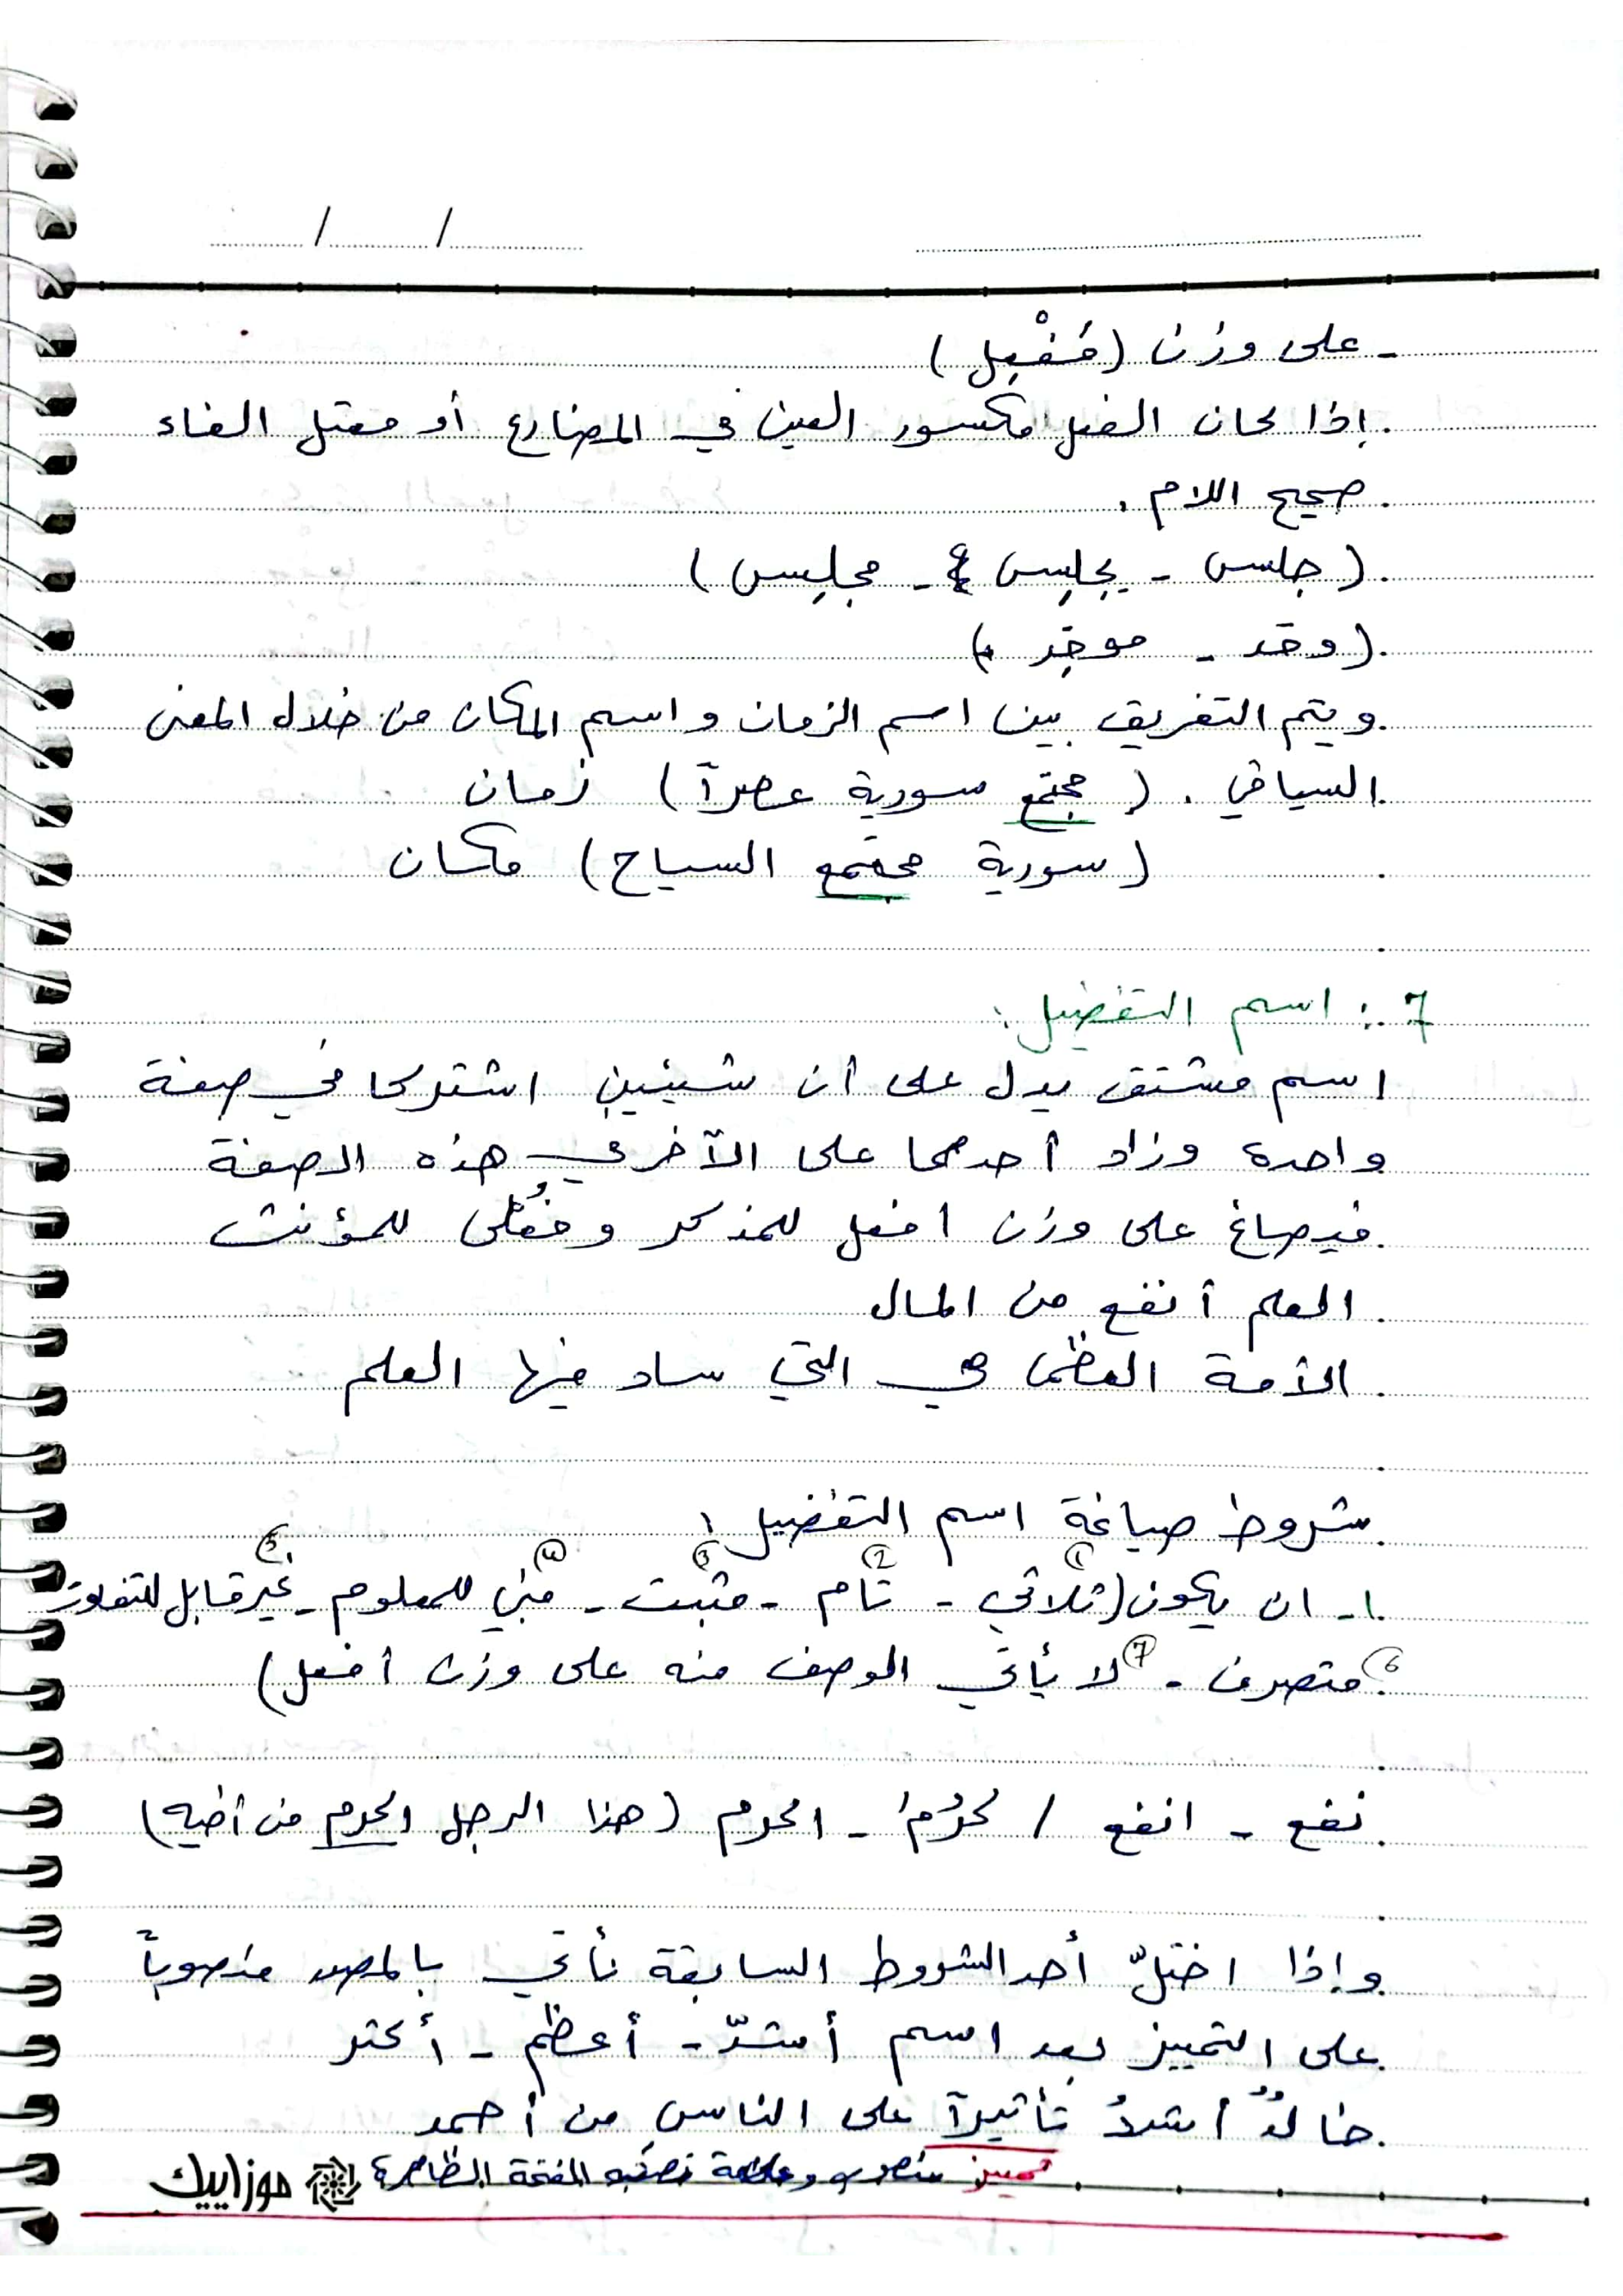 / /
- على وزن (مَفْعِل)
إذا كان الفعل مكسور العين في المضارع أو معتل الفاء
صحيح اللام .
(جلس - يجلِس - مجلِس)
(وقد - موقِد)
ويتم التفريق بين اسم الزمان واسم المكان من خلال المعنى
السياقي . (مجتمع سورية عصراً) زمان
(سورية مجتمع السياح) مكان
7 : اسم التفضيل :
اسم مشتق يدل على أن شيئين اشتركا في صفة
واحدة وزاد أحدهما على الآخر في هذه الصفة
فيصاغ على وزن افعل للمذكر وفُعْلى للمؤنث
العلم أنفع من المال
الأمة العظما هي التي ساد فيها العلم
شروط صياغة اسم التفضيل :
١- ان يكون (① ثلاثي - ② تام - ③ مثبت - ④ مبني للمعلوم - ⑤ غير قابل للتفاوت
⑥ متصرف - ⑦ لا يأتي الوصف منه على وزن أفعل)
نفع - انفع / كرُمَ - اكرم (هذا الرجل اكرم من أخيه)
وإذا اختلّ أحد الشروط السابقة نأتي بالمصدر منصوباً
على التمييز بعد اسم أشدّ - أعظم - أكثر
خالدٌ أشدُ تأثيراً على الناس من أحمد
تمييز منصوب وعلامة نصبه الفتحة الظاهرة
موزاييك